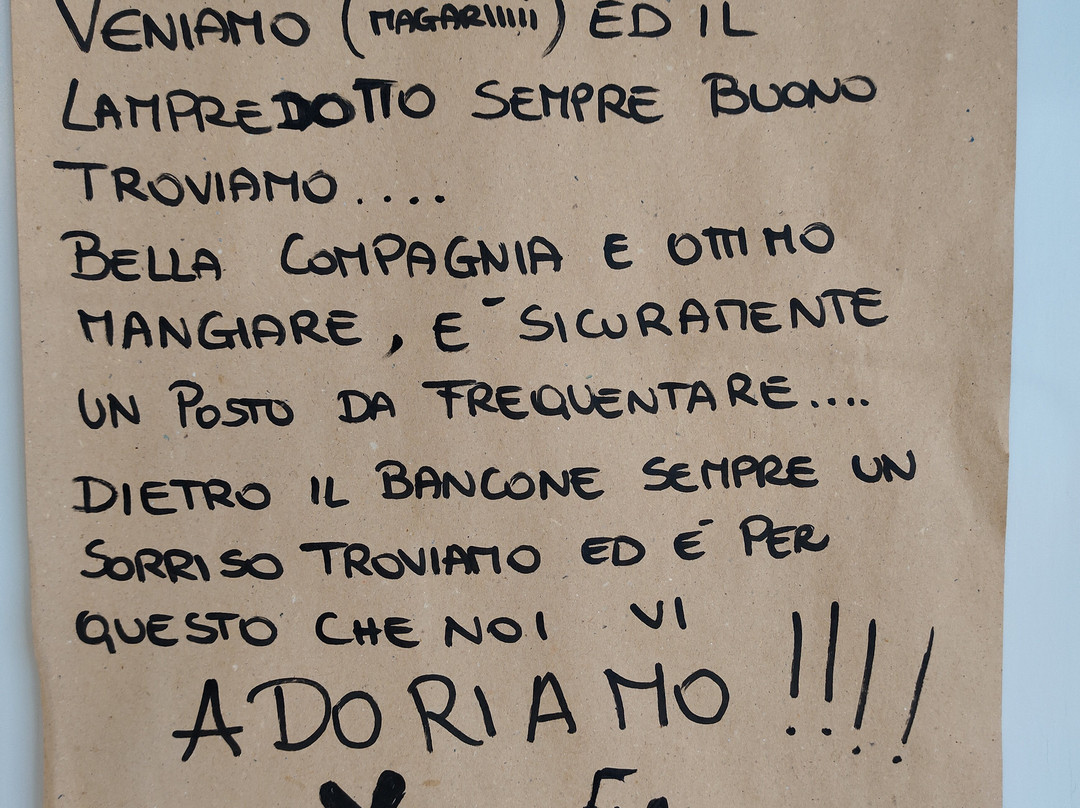 VENIAMO (MAGARIIIIII) ED IL
LAMPREDOTTO SEMPRE BUONO
TROVIAMO....
BELLA COMPAGNIA E OTTIMO
MANGIARE, E' SICURAMENTE
UN POSTO DA FREQUENTARE....
DIETRO IL BANCONE SEMPRE UN
SORRISO TROVIAMO ED E' PER
QUESTO CHE NOI VI
ADORIAMO!!!!